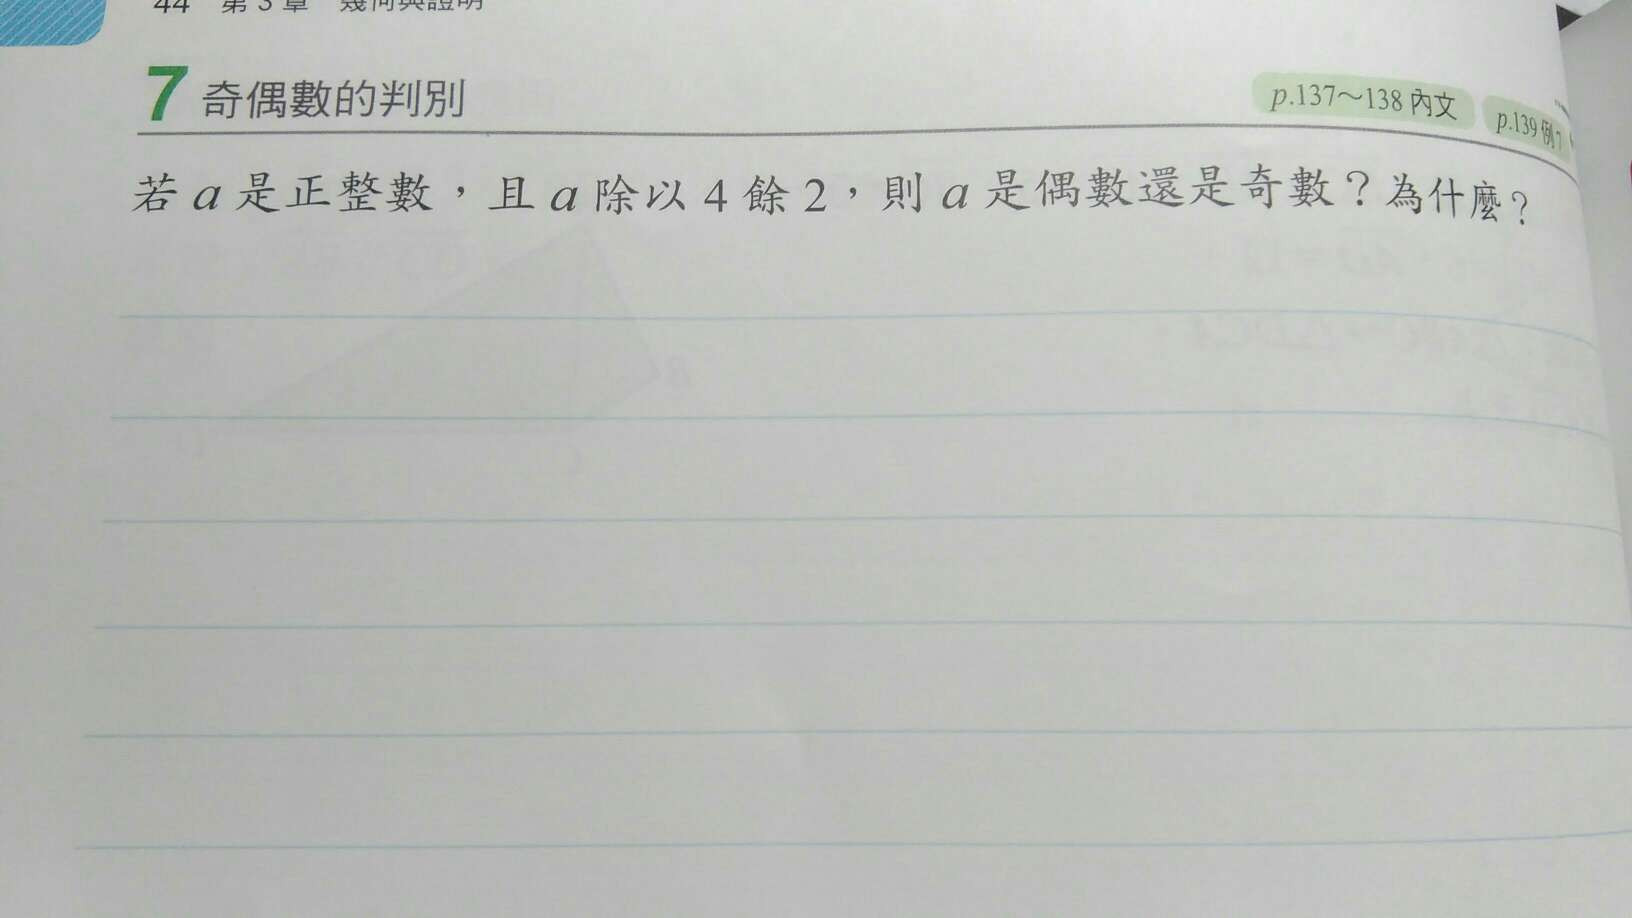 44 第 3 章 幾何與證明
7 奇偶數的判別
p.137～138 內文 p.139 例7
若 a 是正整數，且 a 除以 4 餘 2，則 a 是偶數還是奇數？為什麼？